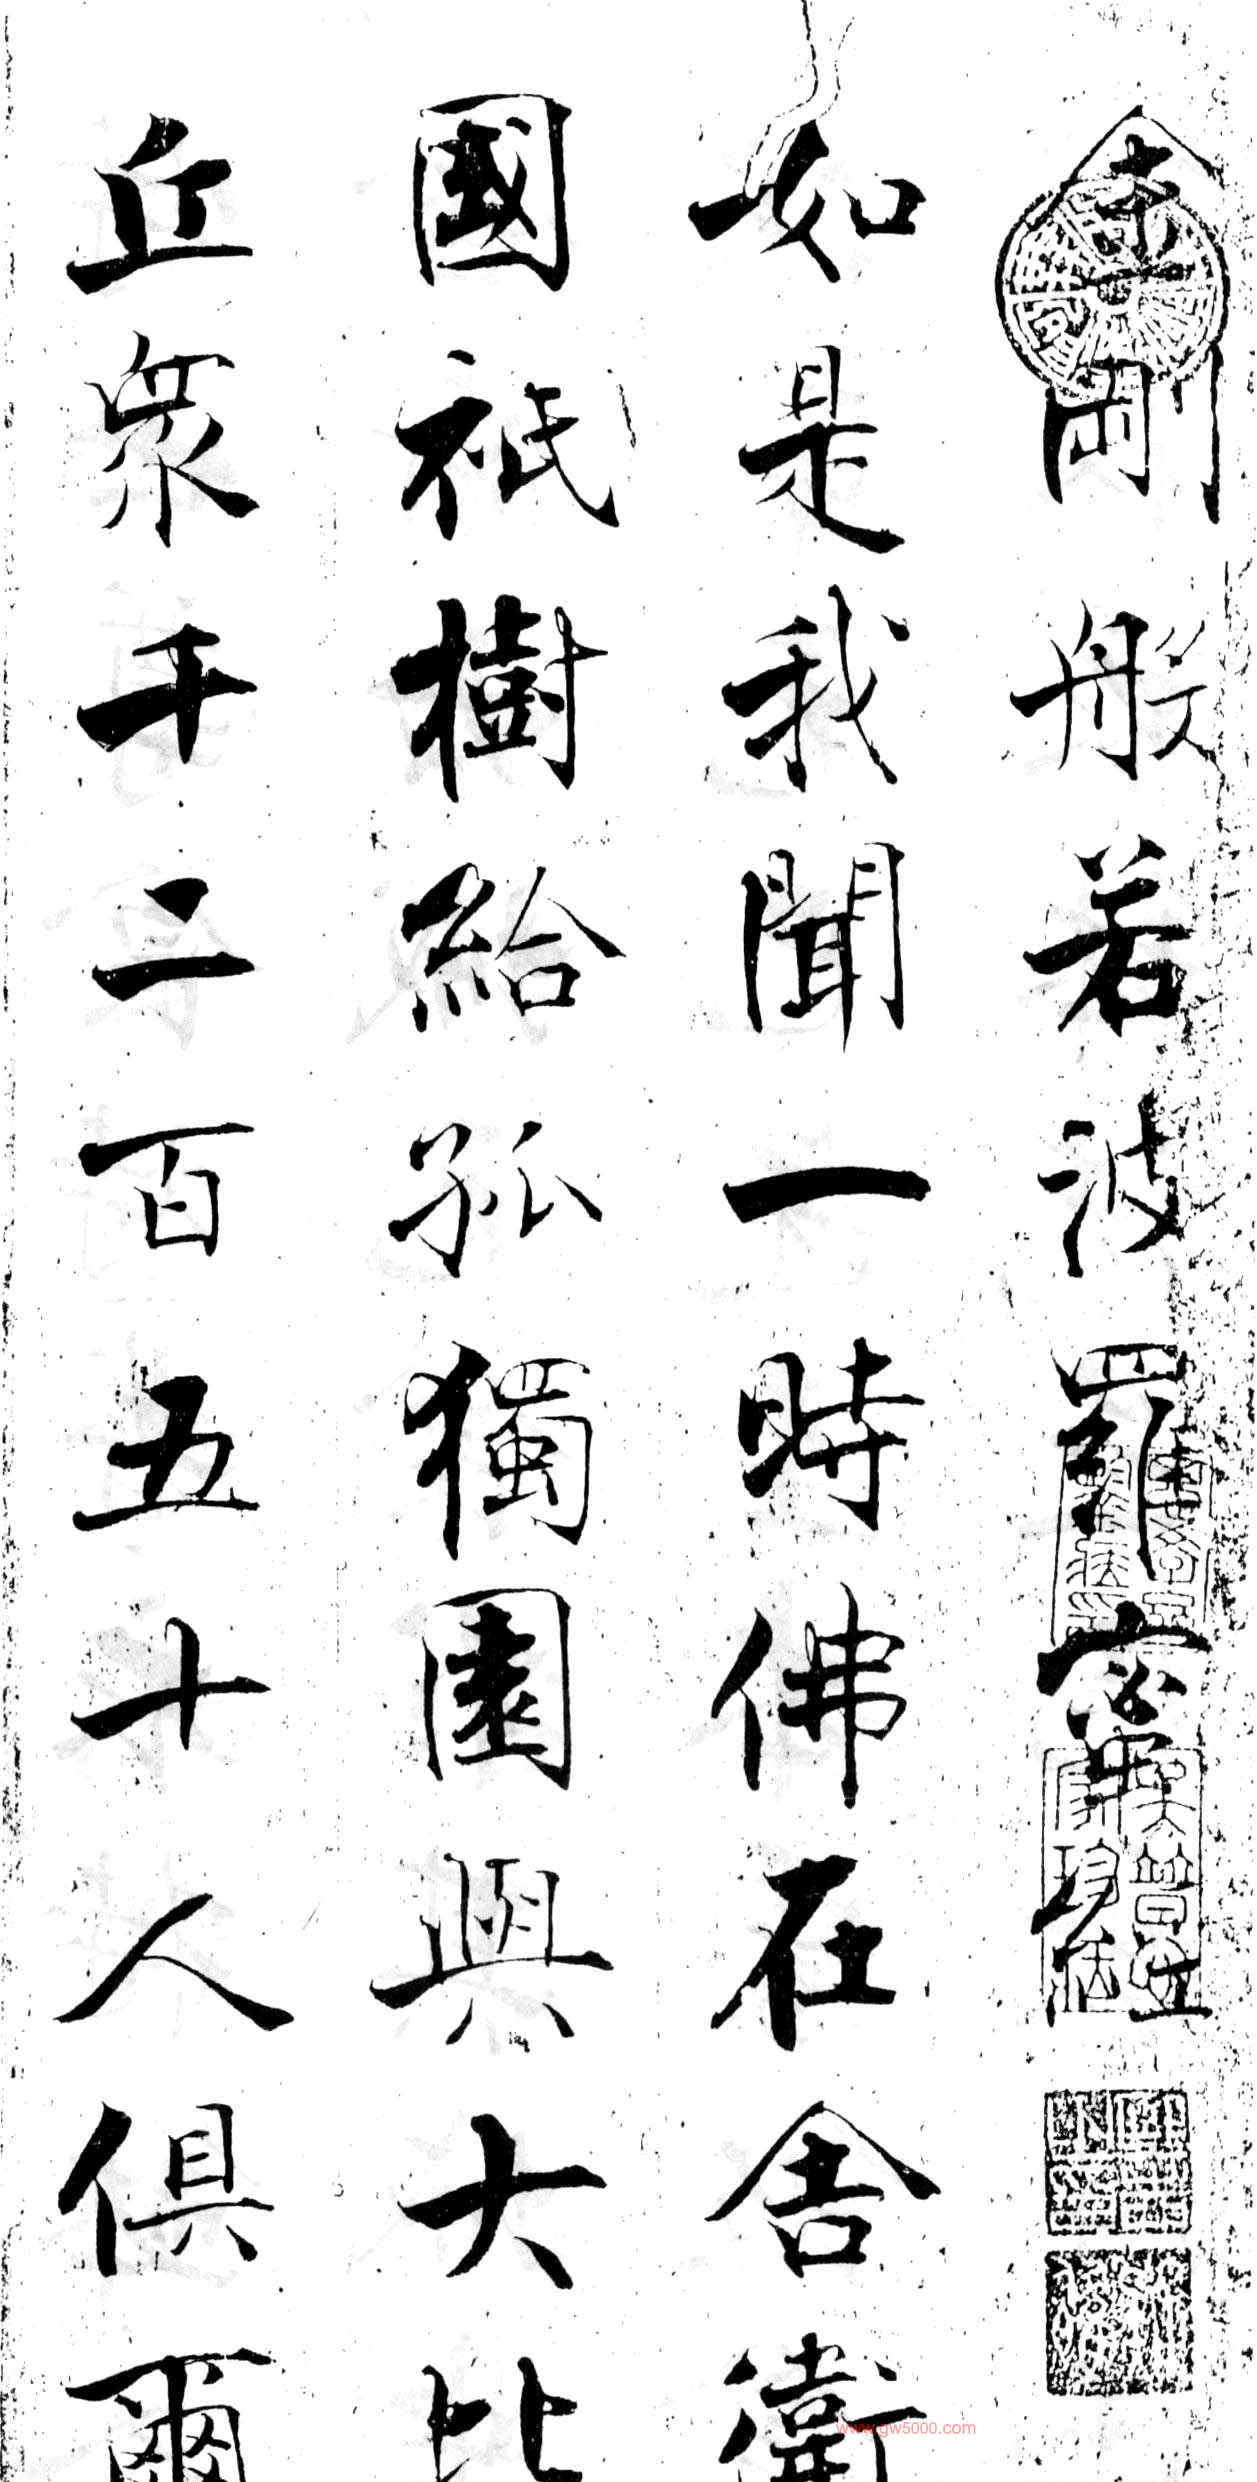 金剛般若波羅蜜經
如是我聞一時佛在舍衛
國祇樹給孤獨園與大比
丘眾千二百五十人俱爾
www.gw5000.com